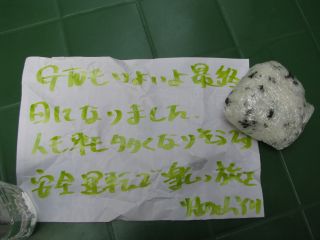 今回もいよいよ最終
日になりました。
人も車も多くなりそうな
安全運転で楽しい旅を